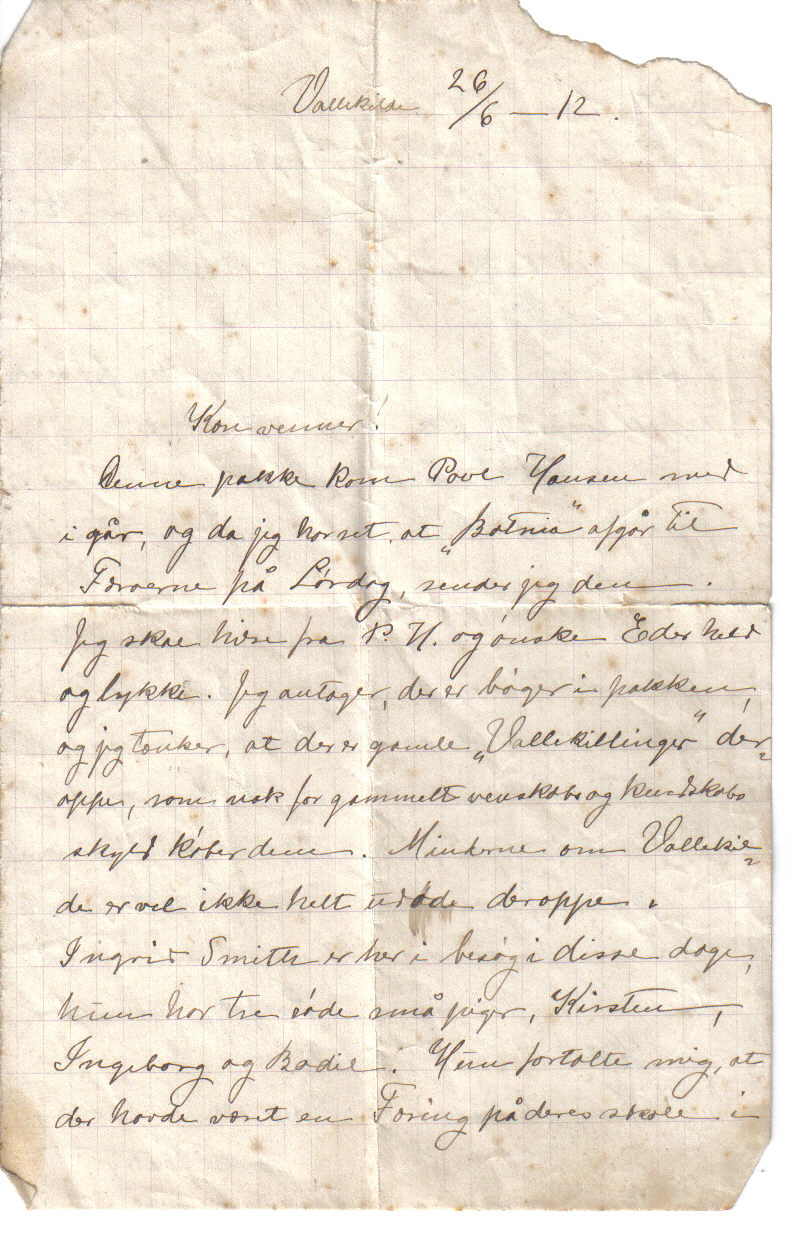 Vallekilde 26/6 — 12.
Kære venner!
Denne pakke kom Povl Hansen med
i går, og da jeg har set, at „Botnia" afgår til
Færøerne på Lørdag, sender jeg den.
Jeg skal hilse fra P. H. og ønske Eder held
og lykke. Jeg antager, der er bøger i pakken,
og jeg tænker, at der er gamle „Vallekillinger" der-
oppe, som nok for gammelt venskabs og kendskabs
skyld køber dem. Minderne om Vallekil-
de er vel ikke helt uddøde deroppe.
Ingrid Smith er her i besøg i disse dage,
hun har tre søde små piger, Kirsten,
Ingeborg og Bodil. Hun fortalte mig, at
der havde været en Færing på deres skole i